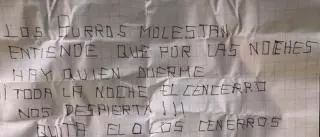 LOS BURROS MOLESTAN,
ENTIENDE QUE POR LAS NOCHES
HAY QUIEN DUERME
¡TODA LA NOCHE EL CENCERRO
NOS DESPIERTA!!!
QUITA EL O LOS CENERROS